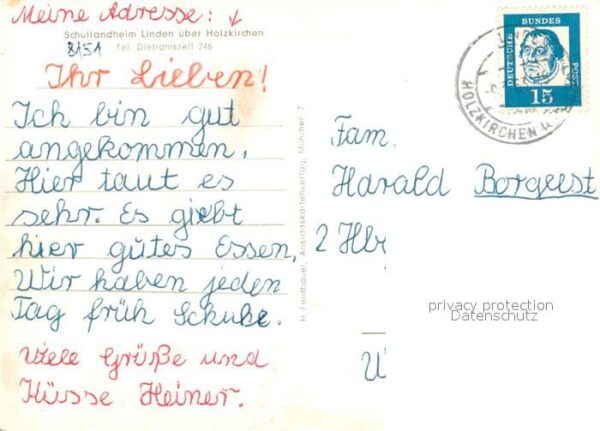 Meine Adresse: ↓
Schullandheim Linden über Holzkirchen
8151
Tel. Dietramszell 246
Ihr Lieben!
Ich bin gut
angekommen.
Hier taut es
sehr. Es giebt
hier gutes Essen,
Wir haben jeden
Tag früh Schule.
Viele Grüße und
Küsse Heiner.
H. Feldbauer, Ansichtskartenverlag, München 7
DEUTSCHE BUNDES POST
15
HOLZKIRCHEN
Fam.
Harald Borgeest
2 Hb
privacy protection
Datenschutz
W